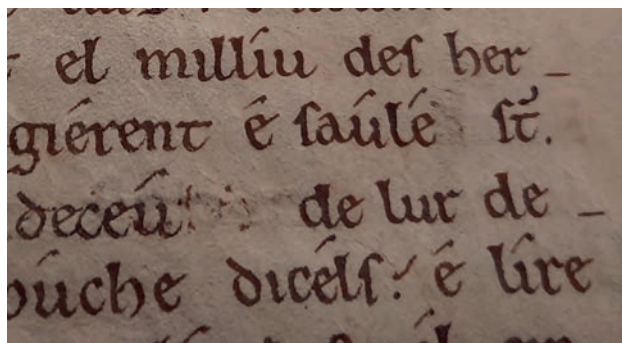 el milliu deſ her-
giérent é ſaúlé ſt̄.
deceú de lur de-
búche dicélſ: é lire